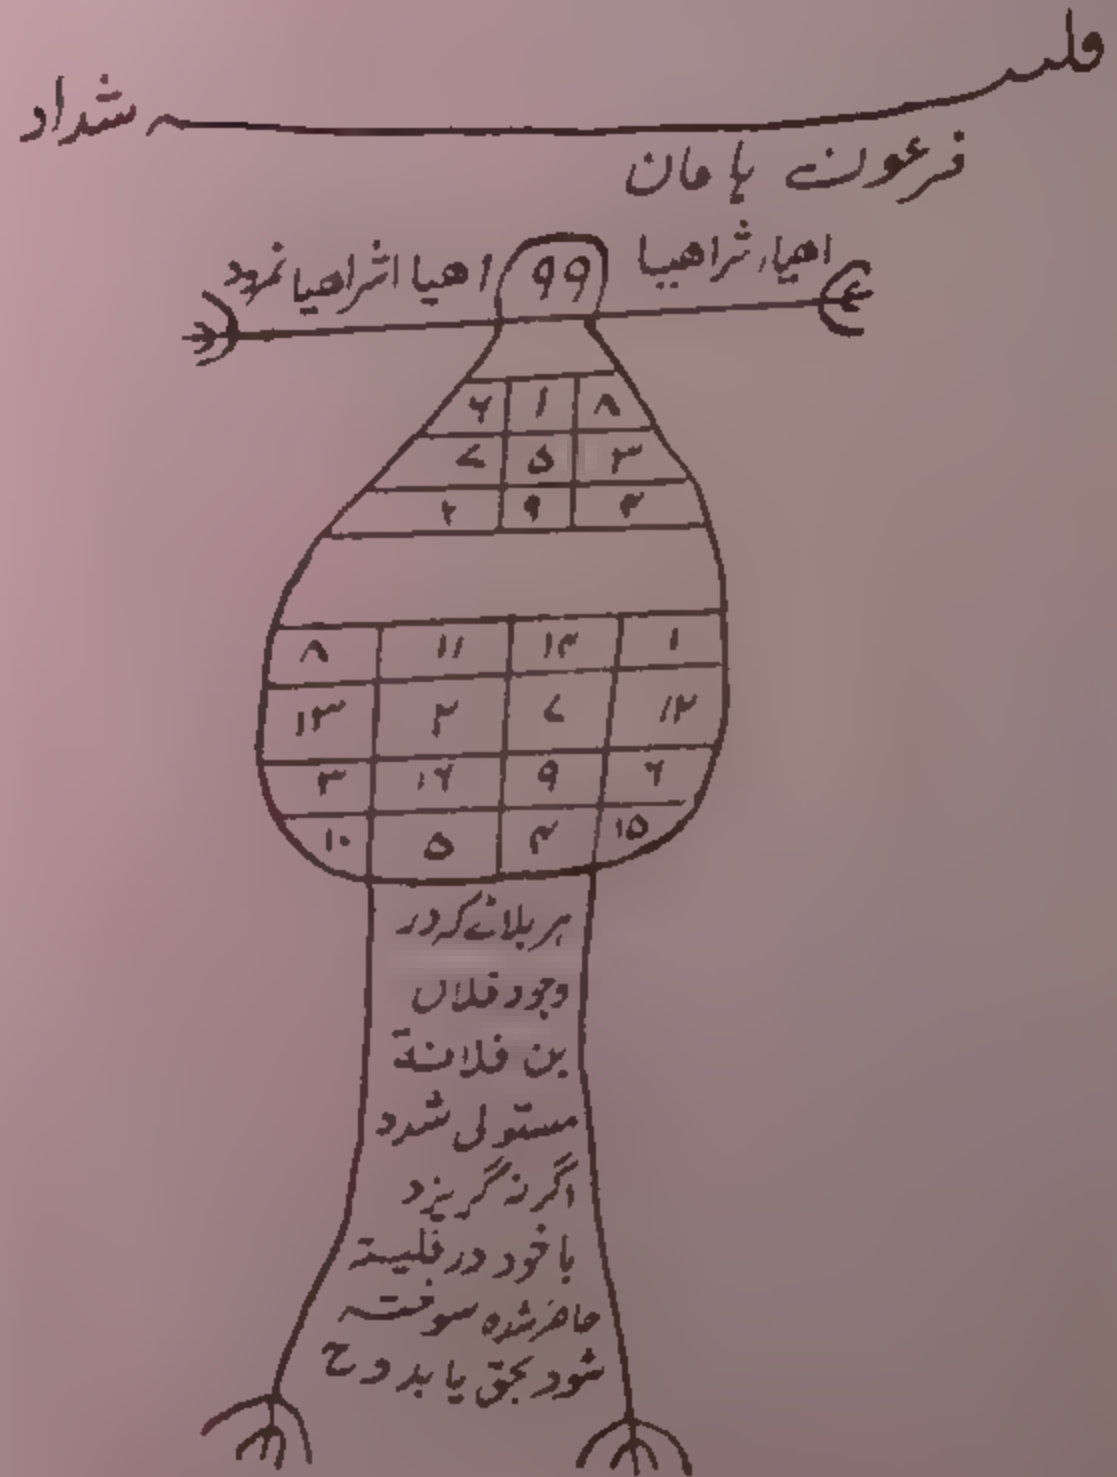 شداد
فرعون ہامان
اهیا اشراهیا نمرود ۹۹ اهیا شراهیا
۶ ۱ ۸
۷ ۵ ۳
۲ ۹ ۴
۸ ۱۱ ۱۴ ۱
۱۳ ۲ ۷ ۱۲
۳ ۱۶ ۹ ۶
۱۰ ۵ ۴ ۱۵
ہر بلائے کہ در
وجود فلاں
بن فلانۃ
مستولی شدد
اگر نہ گریزد
با خود در فلیستہ
حاضر شدہ سوختہ
شود بحق یا بدوح